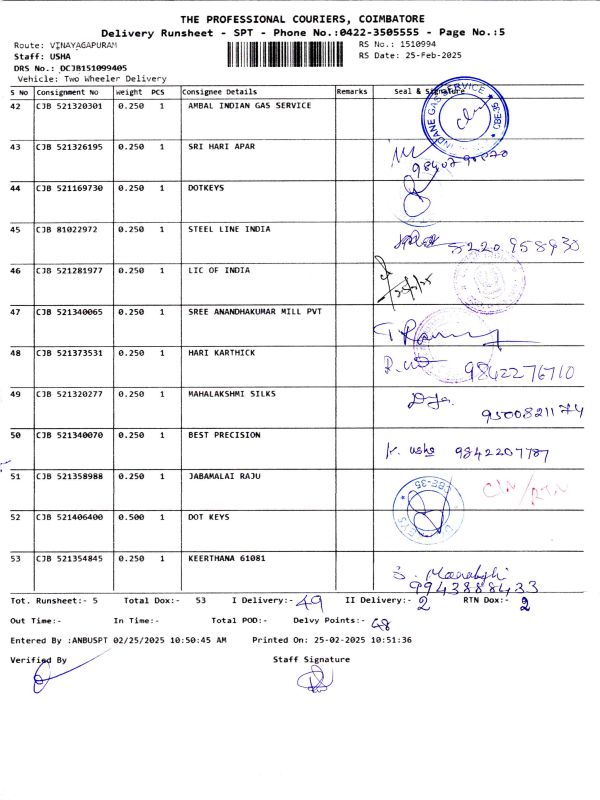 THE PROFESSIONAL COURIERS, COIMBATORE
Delivery Runsheet - SPT - Phone No.:0422-3505555 - Page No.:5
Route: VINAYAGAPURAM RS No.: 1510994
Staff: USHA RS Date: 25-Feb-2025
DRS No.: DCJB151099405
Vehicle: Two Wheeler Delivery
S No Consignment No Weight PCS Consignee Details Remarks Seal & Signature
42 CJB 521320301 0.250 1 AMBAL INDIAN GAS SERVICE
INDANE GAS SERVICE * CBE-35 *
43 CJB 521326195 0.250 1 SRI HARI APAR
44 CJB 521169730 0.250 1 DOTKEYS
45 CJB 81022972 0.250 1 STEEL LINE INDIA
46 CJB 521281977 0.250 1 LIC OF INDIA
47 CJB 521340065 0.250 1 SREE ANANDHAKUMAR MILL PVT
48 CJB 521373531 0.250 1 HARI KARTHICK 9842276710
49 CJB 521320277 0.250 1 MAHALAKSHMI SILKS 9500821174
50 CJB 521340070 0.250 1 BEST PRECISION K. usha 9842207787
51 CJB 521358988 0.250 1 JABAMALAI RAJU
52 CJB 521406400 0.500 1 DOT KEYS
53 CJB 521354845 0.250 1 KEERTHANA 61081
9943888433
Tot. Runsheet:- 5 Total Dox:- 53 I Delivery:- 49 II Delivery:- 2 RTN Dox:- 2
Out Time:- In Time:- Total POD:- Delvy Points:- 48
Entered By :ANBUSPT 02/25/2025 10:50:45 AM Printed On: 25-02-2025 10:51:36
Verified By Staff Signature